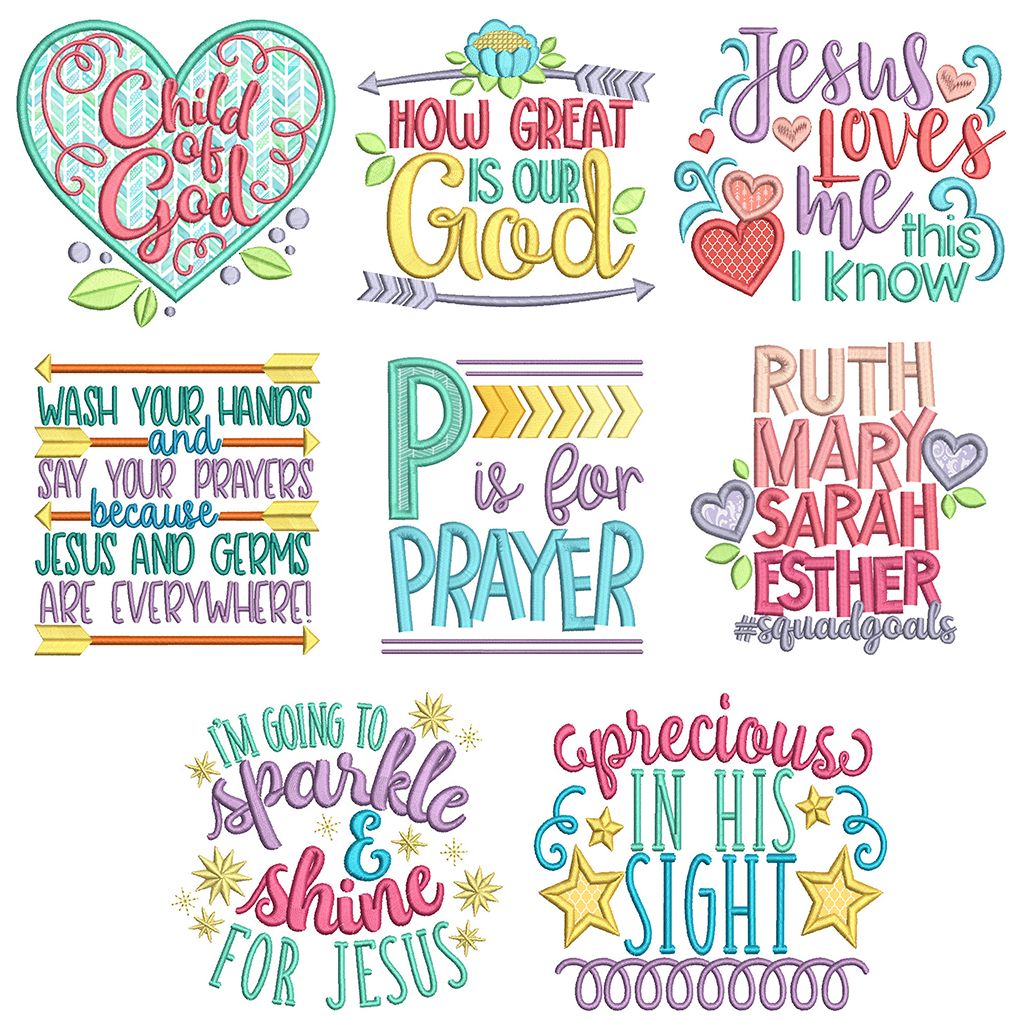 Child
of
God
HOW GREAT
IS OUR
God
Jesus
Loves
me
this
I know
WASH YOUR HANDS
and
SAY YOUR PRAYERS
because
JESUS AND GERMS
ARE EVERYWHERE!
P
is for
PRAYER
RUTH
MARY
SARAH
ESTHER
#squadgoals
I'M GOING TO
sparkle
&
shine
FOR JESUS
precious
IN HIS
SIGHT